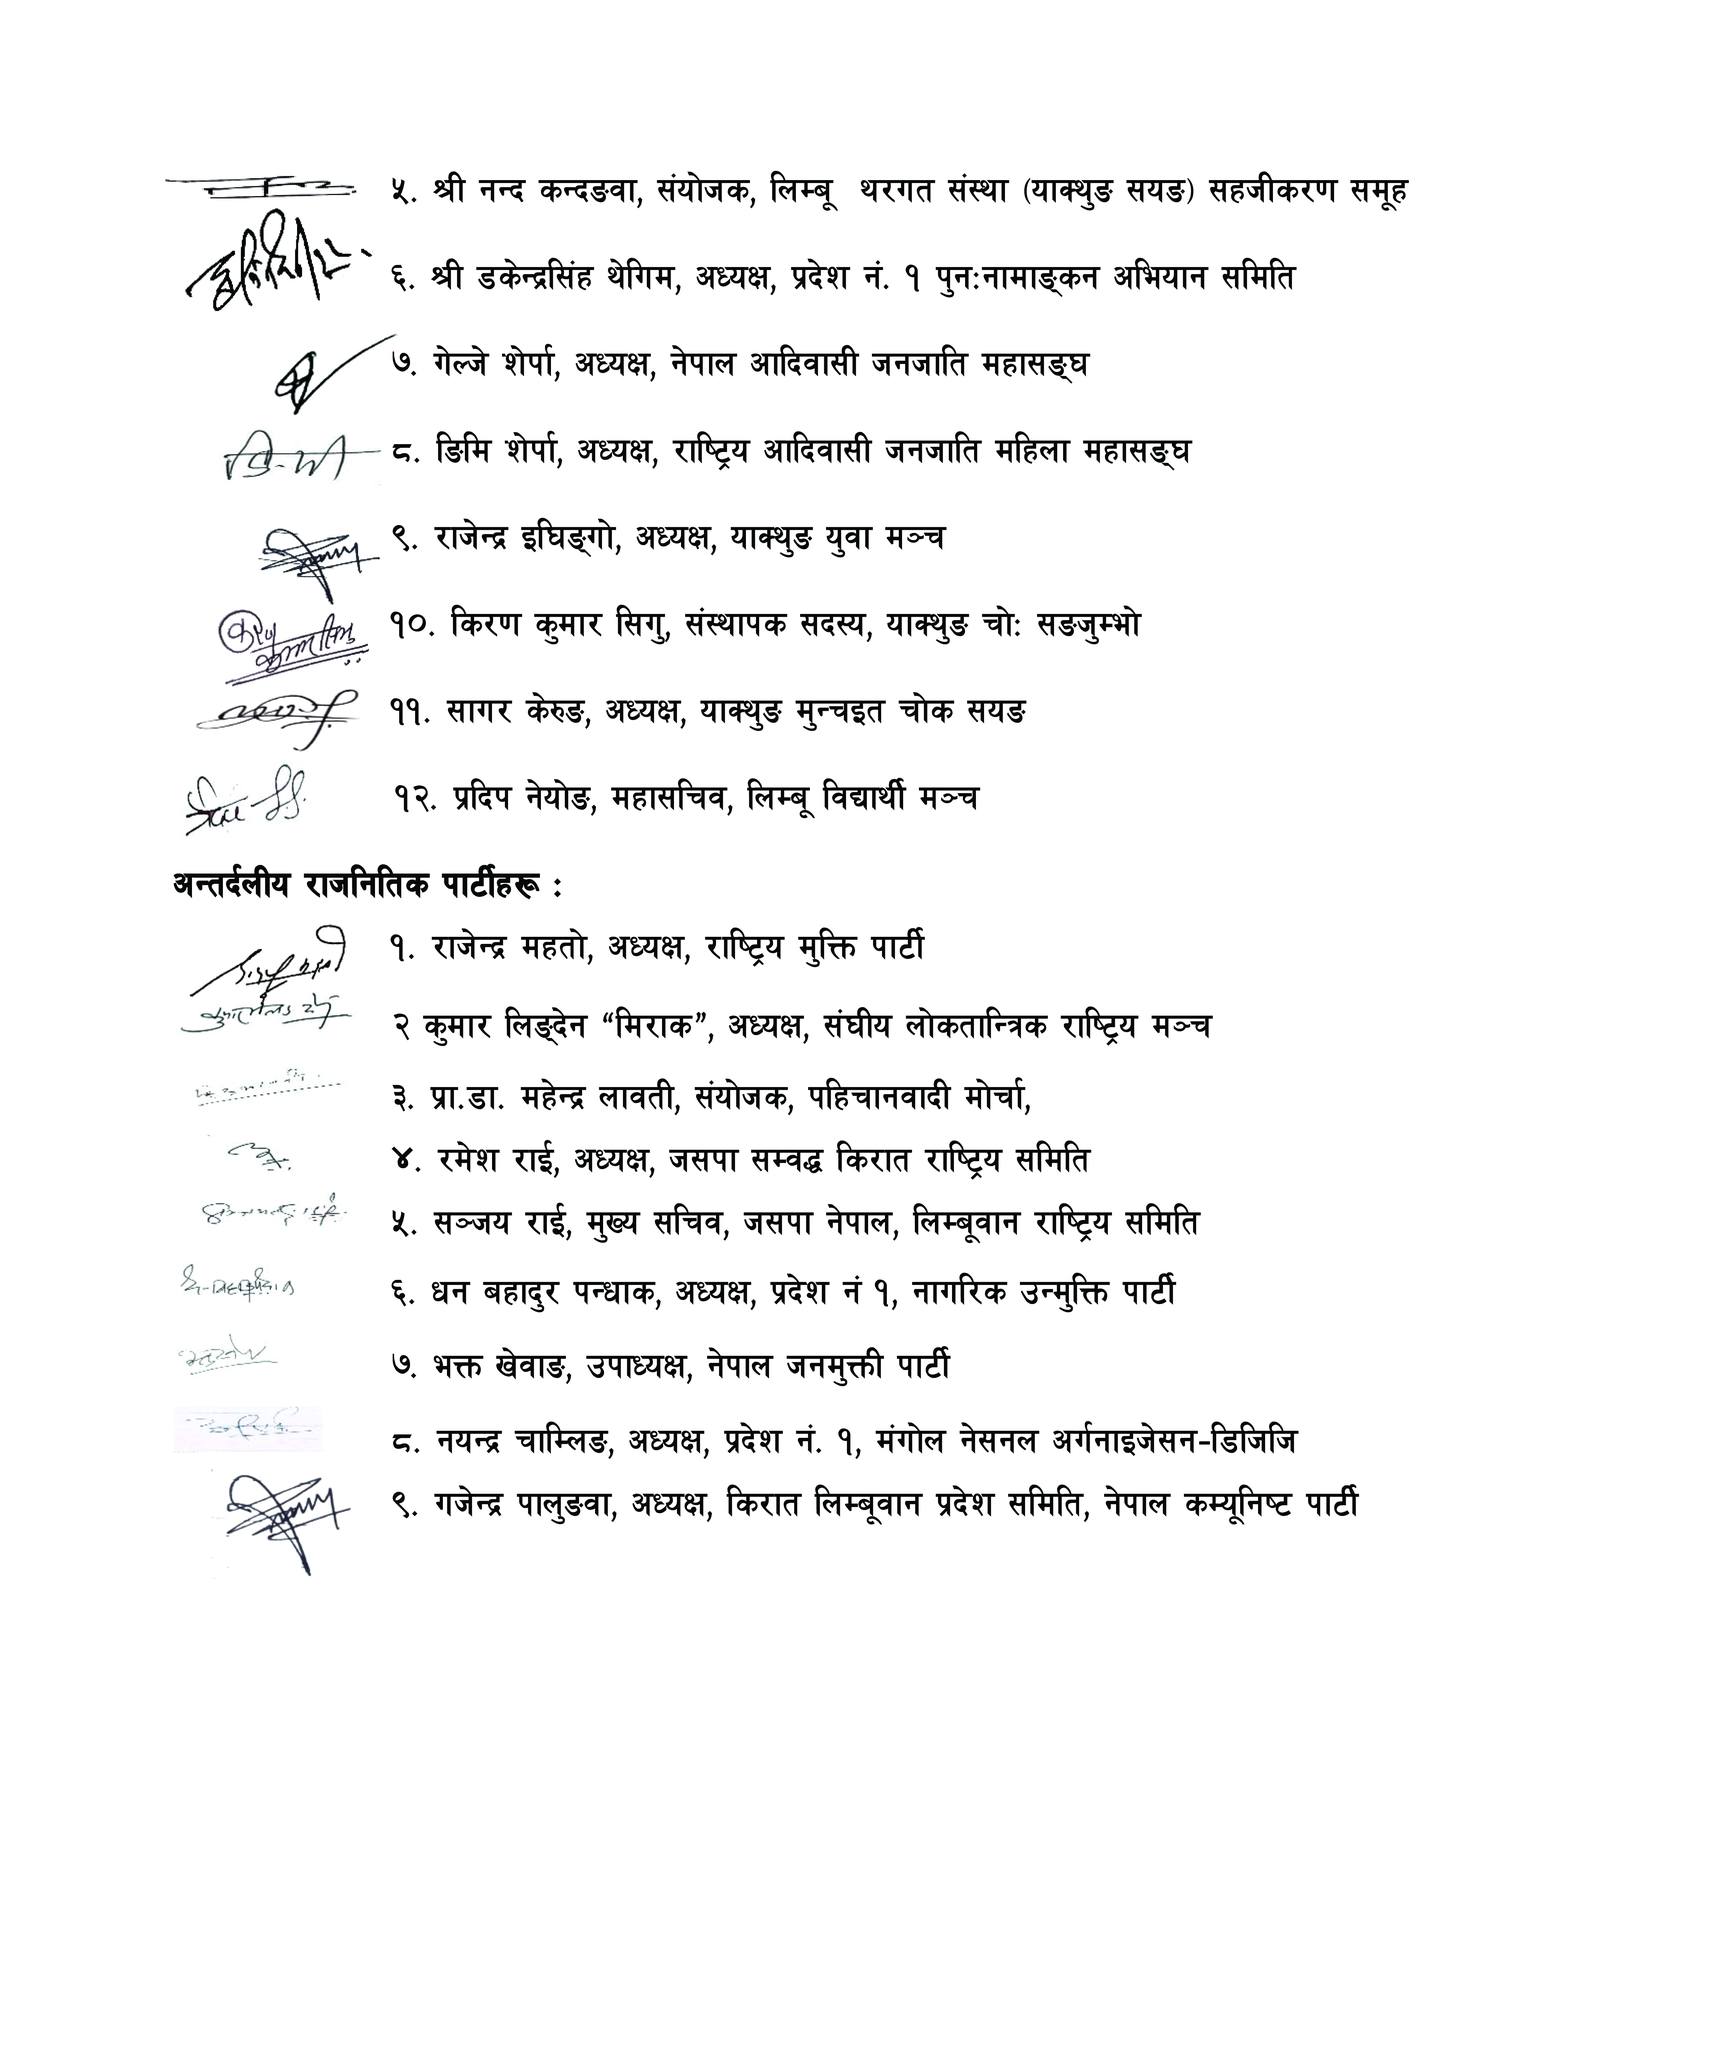 ५. श्री नन्द कन्दङवा, संयोजक, लिम्बू थरगत संस्था (याक्थुङ सयङ) सहजीकरण समूह
६. श्री डकेन्द्रसिंह थेगिम, अध्यक्ष, प्रदेश नं. १ पुन:नामाङ्कन अभियान समिति
७. गेल्जे शेर्पा, अध्यक्ष, नेपाल आदिवासी जनजाति महासङ्घ
८. ङिमि शेर्पा, अध्यक्ष, राष्ट्रिय आदिवासी जनजाति महिला महासङ्घ
९. राजेन्द्र इघिङ्गो, अध्यक्ष, याक्थुङ युवा मञ्च
१०. किरण कुमार सिगु, संस्थापक सदस्य, याक्थुङ चो: सङजुम्भो
११. सागर केरुङ, अध्यक्ष, याक्थुङ मुन्चइत चोक सयङ
१२. प्रदिप नेयोङ, महासचिव, लिम्बू विद्यार्थी मञ्च
अन्तर्दलीय राजनितिक पार्टीहरू :
१. राजेन्द्र महतो, अध्यक्ष, राष्ट्रिय मुक्ति पार्टी
२ कुमार लिङ्देन “मिराक”, अध्यक्ष, संघीय लोकतान्त्रिक राष्ट्रिय मञ्च
३. प्रा.डा. महेन्द्र लावती, संयोजक, पहिचानवादी मोर्चा,
४. रमेश राई, अध्यक्ष, जसपा सम्वद्ध किरात राष्ट्रिय समिति
५. सञ्जय राई, मुख्य सचिव, जसपा नेपाल, लिम्बूवान राष्ट्रिय समिति
६. धन बहादुर पन्धाक, अध्यक्ष, प्रदेश नं १, नागरिक उन्मुक्ति पार्टी
७. भक्त खेवाङ, उपाध्यक्ष, नेपाल जनमुक्ती पार्टी
८. नयन्द्र चाम्लिङ, अध्यक्ष, प्रदेश नं. १, मंगोल नेसनल अर्गनाइजेसन-डिजिजि
९. गजेन्द्र पालुङवा, अध्यक्ष, किरात लिम्बूवान प्रदेश समिति, नेपाल कम्यूनिष्ट पार्टी